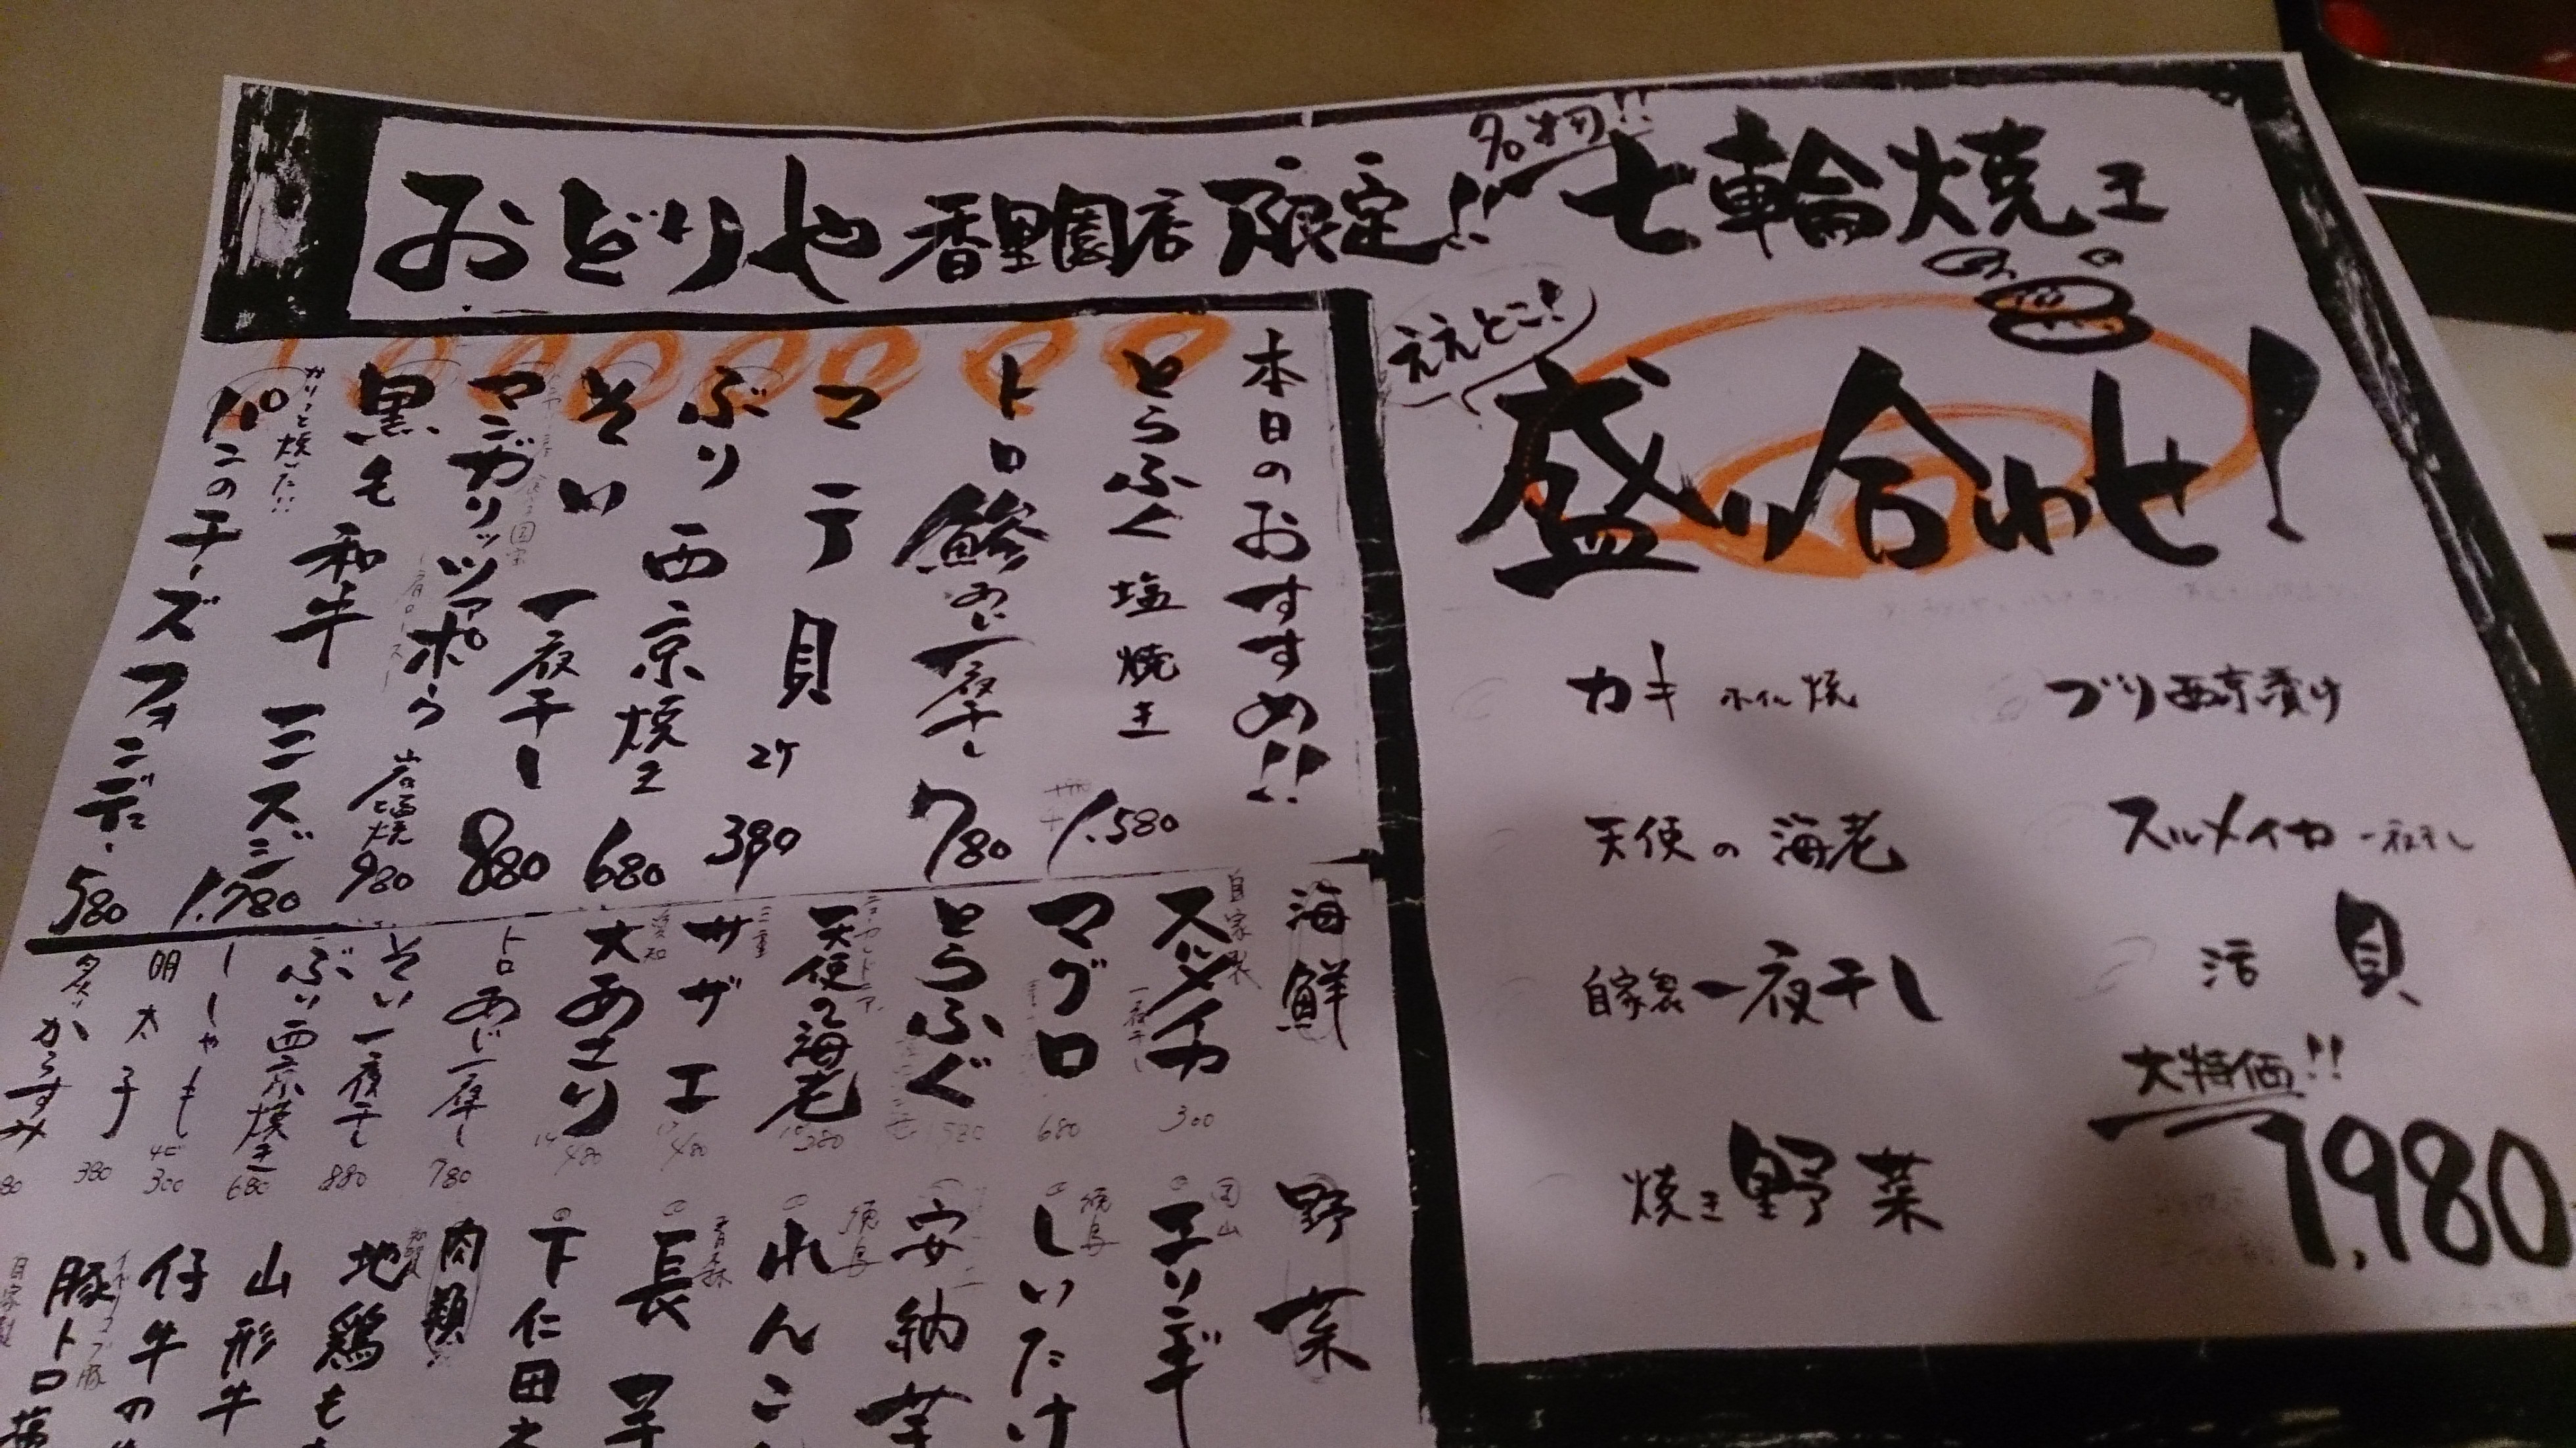 おどりや香里園店限定!!
名物!!
七輪焼き
ええとこ!
盛り合わせ!
カキ ホイル焼
ブリ西京漬け
天使の海老
スルメイカ 一夜干し
自家製一夜干し
活貝
焼き野菜
大特価!!
1,980
本日のおすすめ!!
とらふぐ 塩焼き 1.580
トロ鯵の一夜干し 780
マテ貝 2ケ 390
ぶり 西京焼き 680
そい 一夜干し 880
マンガリッツァポーク 岩塩焼 980
黒毛和牛 ミスジ 1.780
かりっと焼いた!!
パンのチーズフォンデュ 580
海鮮
自家製
スルメイカ 一夜干し 300
マグロ 680
とらふぐ 1580
ニューカレドニア
天使の海老 280
三重
サザエ 480
愛知
大あさり 480
トロあじ一夜干し 780
そい一夜干し 880
ぶり西京焼き 680
ししゃも 300
明太子 380
からすみ
野菜
エリンギ
徳島
しいたけ
安納芋
徳島
れんこ
青森
長芋
下仁田
肉類
地鶏も
山形牛
仔牛の
豚トロ
自家製